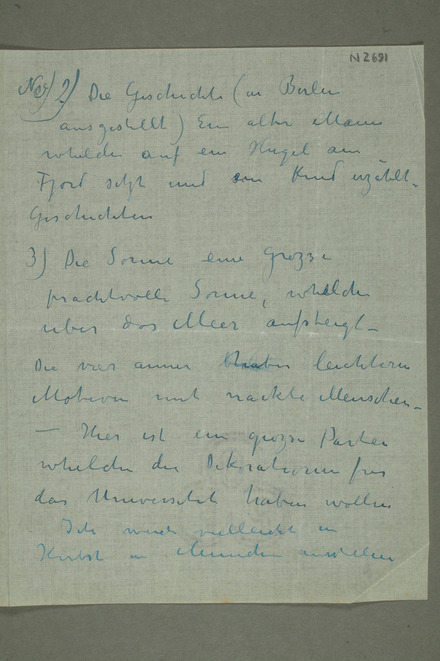 N 2691
No) 2) Die Geschichte (in Berlin
ausgestellt) Ein alter Mann
whelche auf ein Hügel am
Fjord sitzt und ein Kind erzählt
Geschichten
3) Die Sonne eine grosse
prachtvolle Sonne, whelche
über das Meer aufsteigt –
Die vier haben leichtere
Motiven mit nackte Menschen –
— Hier ist ein grosse Partei
whelche die Dekorationen fur
das Universität haben wollen
Ich werde vielleicht im
Herbst in Munchen